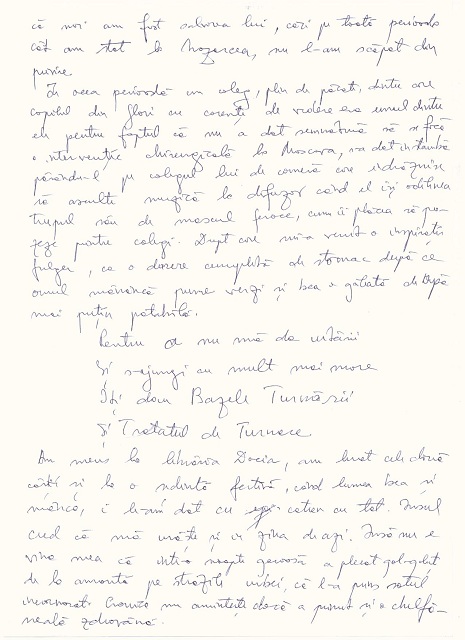 că noi am fost salvarea lui, căci pe toată perioada
cât am stat la Mozacea, nu l-am scăpat din
privire.
În acea perioadă un coleg, plin de păcate, dintre care
copilul din flori cu carențe de vedere era unul dintre
ele pentru faptul că nu a dat semnătură să se facă
o intervenție chirurgicală la Moscova, s-a dat în stambă
pârându-l pe colegul lui de cameră care îndrăznise
să asculte muzică la difuzor când el își odihnea
trupul său de mascul feroce, cum îi plăcea să po-
zeze printre colegi. Drept care mi-a venit o inspirație
fulger, ca o durere cumplită de stomac după ce
omul mănâncă prune verzi și bea o găleată de apă
mai puțin potabilă.
Pentru a nu mă da uitării
Și s-ajungi cu mult mai mare
Îți dau Bazele Turnării
Și Tratatul de Turnare.
Am mers la librăria Dacia, am luat cele două
cărți și la o ședință festivă, când lumea bea și
mânca, i le-am dat cu catren cu tot. Insul
cred că mă urăște și în ziua de azi. Însă nu e
vina mea că într-o noapte geroasă a plecat gol
de la amantă pe străzile urbei, că l-a prins soțul
încornorat. Cronica nu amintește dacă a primit și o chelfă-
neală zdravănă.